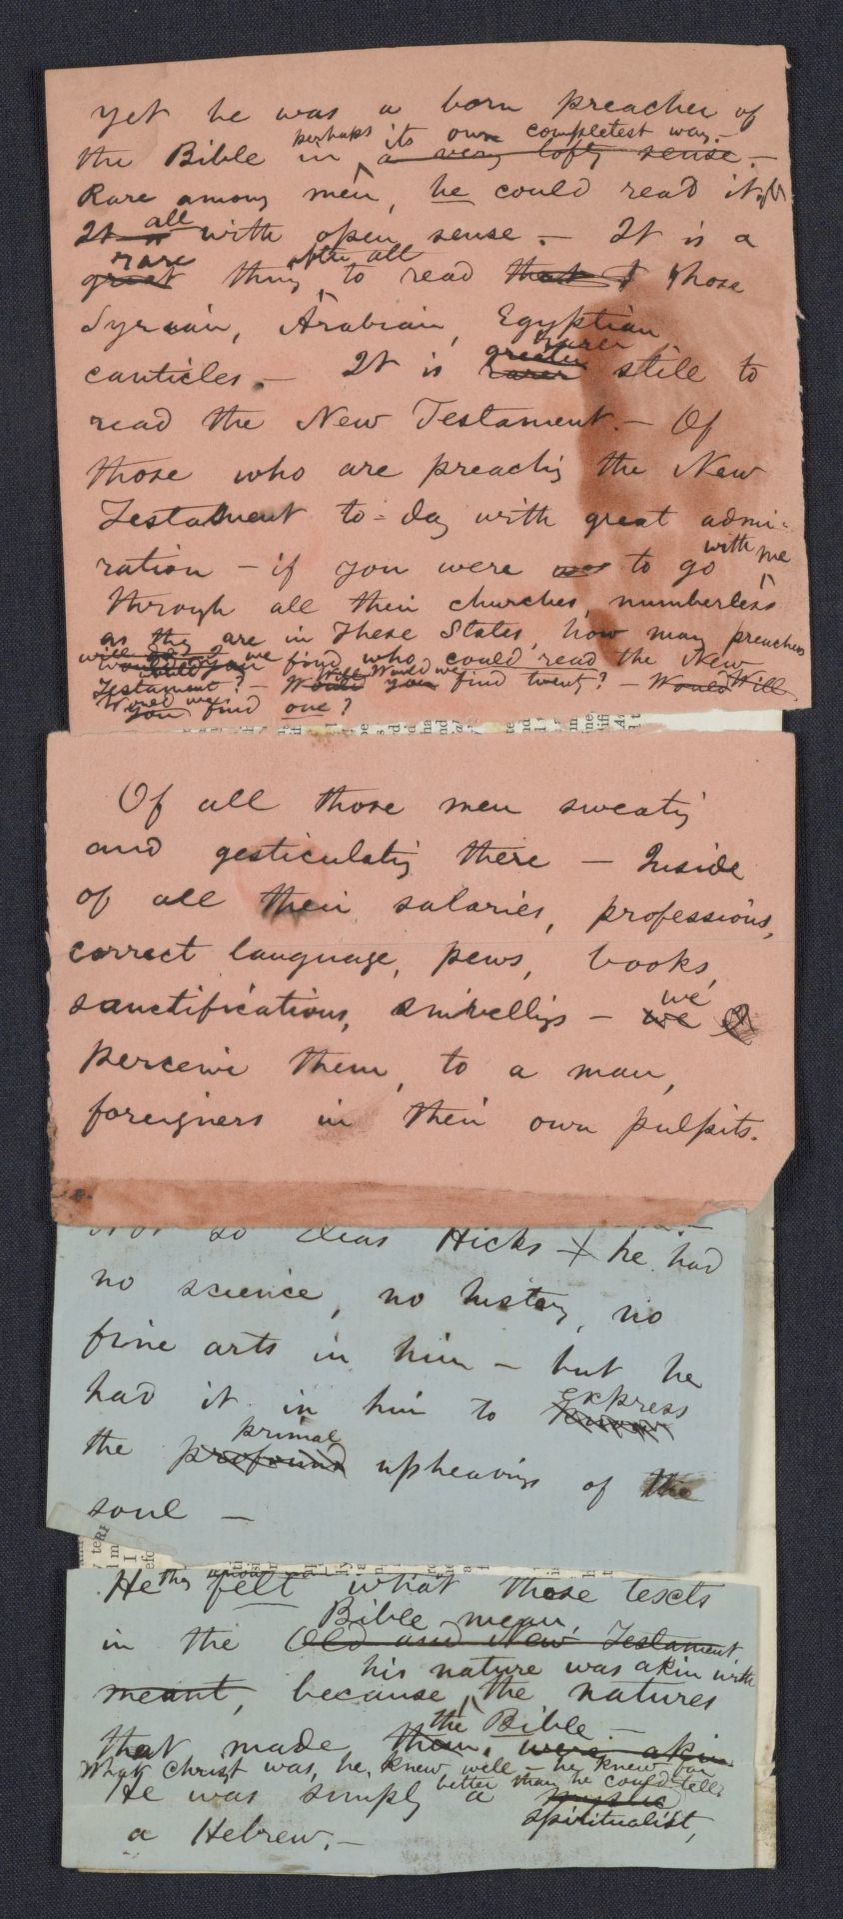 yet he was a born preacher of
perhaps its own completest way. –
the Bible in a very lofty sense. –
Rare among men, he could read it,
It all with open sense. – It is a
rare after all
great thing to read that those
Syrian, Arabian, Egyptian
rarer
greater
canticles. – It is rarer still to
read the New Testament. – Of
those who are preachig the New
Testament to-day with great admi-
with me
ration – if you were to go
through all their churches, numberless
as the are in These States, how many preachers
we find who could read the New
Will Would we
Testament? – Would you find twenty? – Would Will
Would we
you find one?
Of all those men sweatig
and gesticulatig there – Inside
of all their salaries, professions,
correct language, pews, books,
sanctifications, snivelligs – we
we
perceive them, to a man,
foreigners in their own pulpits.
Not so Elias Hicks – he had
no science, no history, no
fine arts in him – but he
express
had it in him to
primal
the profound upheavings of the
soul –
He felt what these texts
Bible mean,
in the Old and New Testament
his nature was akin with
meant, because the natures
the Bible –
that made them, were akin
What Christ was, he knew well – he knew far
better than he could tell.
He was simply a mystic
spiritualist,
a Hebrew. –